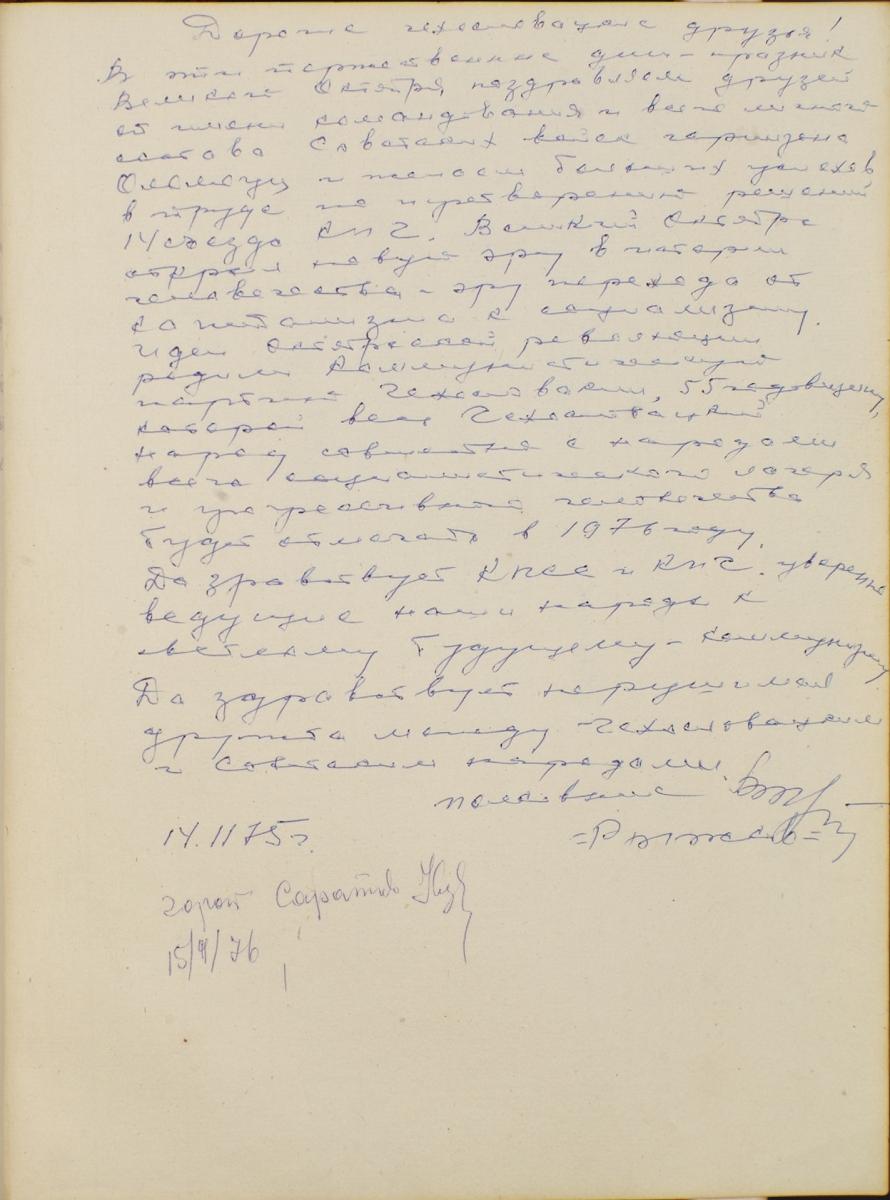 Дорогие чехословацкие друзья!
В эти торжественные дни - праздник
Великого Октября, поздравляем друзей
от имени командования и всего личного
состава Советских войск гарнизона
Оломоуц и желаем больших успехов
в труде по претворению решений
14 съезда КПЧ. Великий Октябрь
открыл новую эру в истории
человечества - эру перехода от
капитализма к социализму.
Идеи Октябрьской революции
родили Коммунистическую
партию Чехословакии, 55 годовщину,
которой весь Чехословацкий
народ совместно с народами
всего социалистического лагеря
и прогрессивного человечества
будет отмечать в 1976 году.
Да здравствует КПСС и КПЧ. уверенно
ведущие наши народы к
светлому будущему - коммунизму
Да здравствует нерушимая
дружба между Чехословацким
и Советским народами.
полковник
=Рыжков=
14.11 75 г.
город Саратов
15/4/76